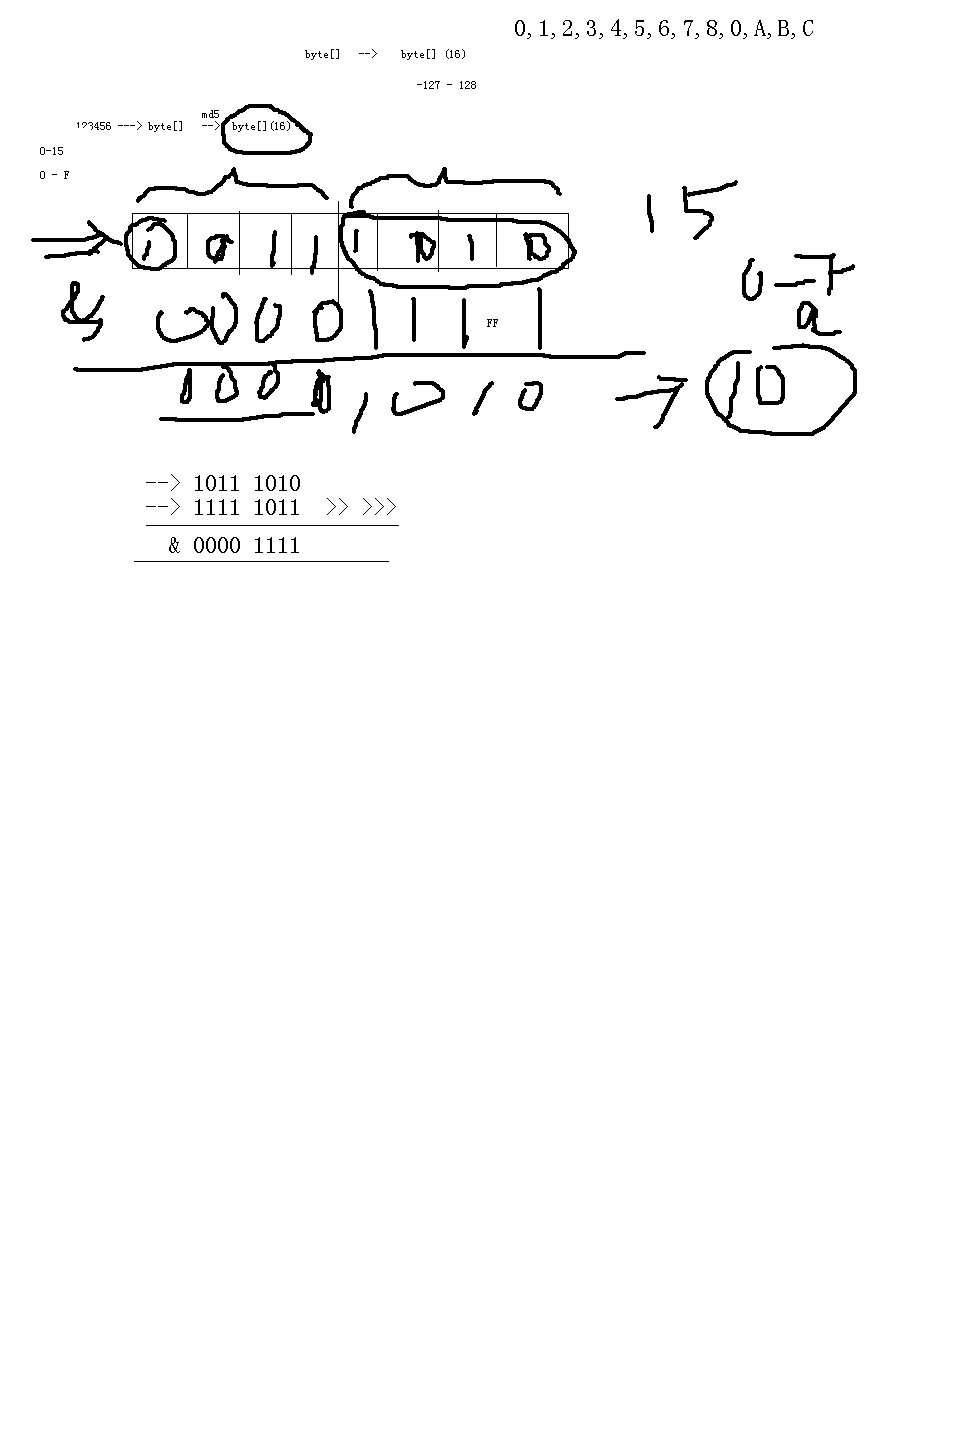 0,1,2,3,4,5,6,7,8,0,A,B,C
byte[] --> byte[] (16)
-127 - 128
md5
123456 ---> byte[] --> byte[](16)
0-15
0 - F
15
1 0 1 1 1 0 1 0
0-F
& 0 0 0 0 1 1 1 FF 1
a
1 0 0 0 1 0 1 0 → 10
--> 1011 1010
--> 1111 1011 >> >>>
& 0000 1111